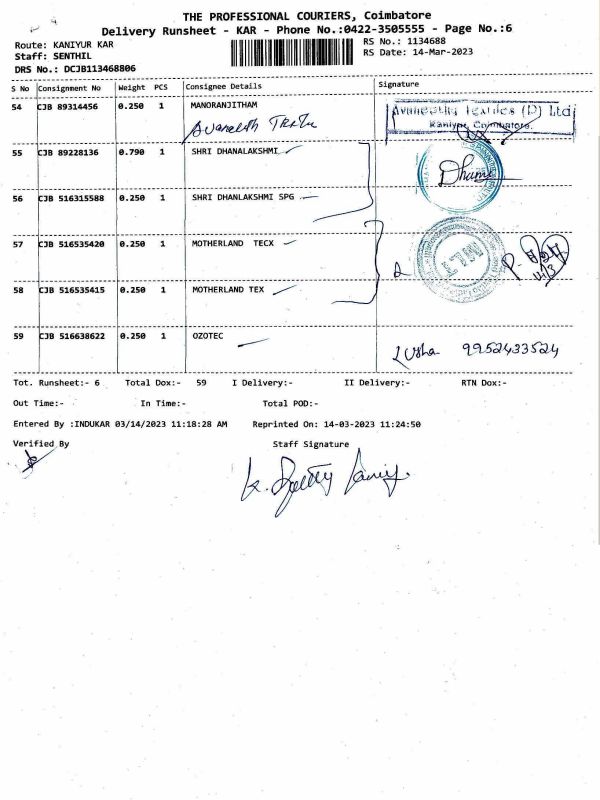 THE PROFESSIONAL COURIERS, Coimbatore
Delivery Runsheet - KAR - Phone No.:0422-3505555 - Page No.:6
Route: KANIYUR KAR
RS No.: 1134688
Staff: SENTHIL
RS Date: 14-Mar-2023
DRS No.: DCJB113468806
S No Consignment No Weight PCS Consignee Details Signature
54 CJB 89314456 0.250 1 MANORANJITHAM
(P) Ltd
Kaniyur, Coimbatore.
55 CJB 89228136 0.790 1 SHRI DHANALAKSHMI
56 CJB 516315588 0.250 1 SHRI DHANLAKSHMI SPG
57 CJB 516535420 0.250 1 MOTHERLAND TECX
58 CJB 516535415 0.250 1 MOTHERLAND TEX
59 CJB 516638622 0.250 1 OZOTEC
Usha 9952433524
Tot. Runsheet:- 6 Total Dox:- 59 I Delivery:- II Delivery:- RTN Dox:-
Out Time:- In Time:- Total POD:-
Entered By :INDUKAR 03/14/2023 11:18:28 AM Reprinted On: 14-03-2023 11:24:50
Verified By Staff Signature